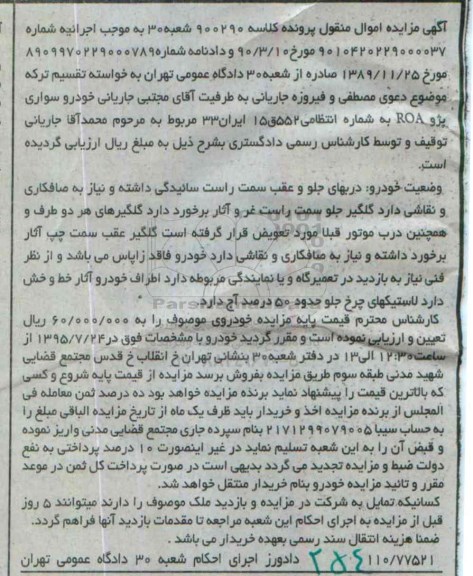 آگهی مزایده اموال منقول پرونده کلاسه ۹۰۰۲۹۰ شعبه۳۰ به موجب اجرائیه شماره
۹۰۱۰۴۲۰۲۲۹۰۰۰۰۳۷ مورخ۹۰/۳/۱۰ و دادنامه شماره۸۹۰۹۹۷۰۲۲۹۰۰۰۷۸۹
مورخ ۱۳۸۹/۱۱/۲۵ صادره از شعبه۳۰ دادگاه عمومی تهران به خواسته تقسیم ترکه
موضوع دعوی مصطفی و فیروزه جاریانی به طرفیت آقای مجتبی جاریانی خودرو سواری
پژو ROA به شماره انتظامی۵۵۲ق۱۵ ایران۳۳ مربوط به مرحوم محمدآقا جاریانی
توقیف و توسط کارشناس رسمی دادگستری بشرح ذیل به مبلغ ریال ارزیابی گردیده
است.
وضعیت خودرو: دربهای جلو و عقب سمت راست سائیدگی داشته و نیاز به صافکاری
و نقاشی دارد گلگیر جلو سمت راست غر و آثار برخورد دارد گلگیرهای هر دو طرف و
همچنین درب موتور قبلا مورد تعویض قرار گرفته است گلگیر عقب سمت چپ آثار
برخورد داشته و نیاز به صافکاری و نقاشی دارد خودرو فاقد زاپاس می باشد و از نظر
فنی نیاز به بازدید در تعمیرگاه و یا نمایندگی مربوطه دارد اطراف خودرو آثار خط و خش
دارد لاستیکهای چرخ جلو حدود ۵۰ درصد آج دارد
کارشناس محترم قیمت پایه مزایده خودروی موصوف را به ۶۰/۰۰۰/۰۰۰ ریال
تعیین و ارزیابی نموده است و مقرر گردید خودرو با مشخصات فوق در۱۳۹۵/۷/۲۴ از
ساعت۱۲:۳۰ الی۱۳ در دفتر شعبه۳۰ بنشانی تهران خ انقلاب خ قدس مجتمع قضایی
شهید مدنی طبقه سوم طریق مزایده بفروش برسد مزایده از قیمت پایه شروع و کسی
که بالاترین قیمت را پیشنهاد نماید برنده مزایده خواهد بود ده درصد ثمن معامله فی
المجلس از برنده مزایده اخذ و خریدار باید ظرف یک ماه از تاریخ مزایده الباقی مبلغ را
به حساب سیبا ۲۱۷۱۲۹۹۰۷۹۰۰۵ بنام سپرده جاری مجتمع قضایی مدنی واریز نموده
و قبض آن را به این شعبه تسلیم نماید در غیر اینصورت ۱۰ درصد پرداختی به نفع
دولت ضبط و مزایده تجدید می گردد بدیهی است در صورت پرداخت کل ثمن در موعد
مقرر و تائید مزایده خودرو بنام خریدار منتقل خواهد شد.
کسانیکه تمایل به شرکت در مزایده و بازدید ملک موصوف را دارند میتوانند ۵ روز
قبل از مزایده به اجرای احکام این شعبه مراجعه تا مقدمات بازدید آنها فراهم گردد.
ضمنا هزینه انتقال سند رسمی بعهده خریدار می باشد .
۱۱۰/۷۷۵۲۱ ۲۸۴ دادورز اجرای احکام شعبه ۳۰ دادگاه عمومی تهران